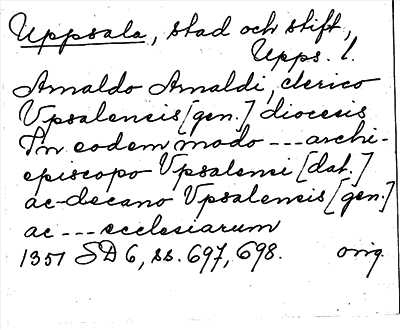 Uppsala, stad och stift,
Upps. l.
Arnaldo Arnaldi, clerico
Vpsalensis [gen.] diocesis
In eodem modo --- archi-
episcopo Vpsalensi [dat.]
ac decano Vpsalensis [gen.]
ac --- ecclesiarum
1351 SD 6, ss. 697, 698. orig.